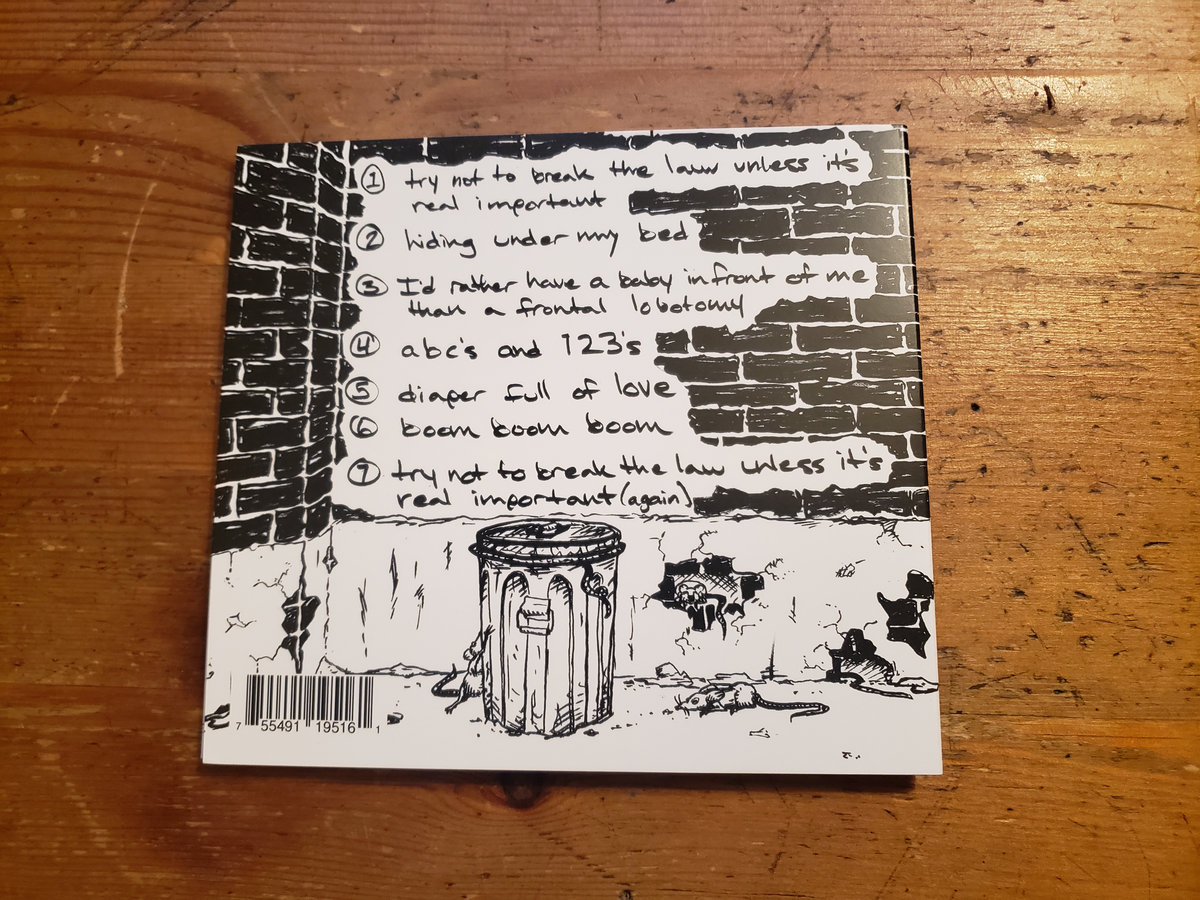 ① try not to break the law unless it's
real important
② hiding under my bed
③ I'd rather have a baby in front of me
than a frontal lobotomy
④ abc's and 123's
⑤ diaper full of love
⑥ boom boom boom
⑦ try not to break the law unless it's
real important (again)
7 55491 19516 1